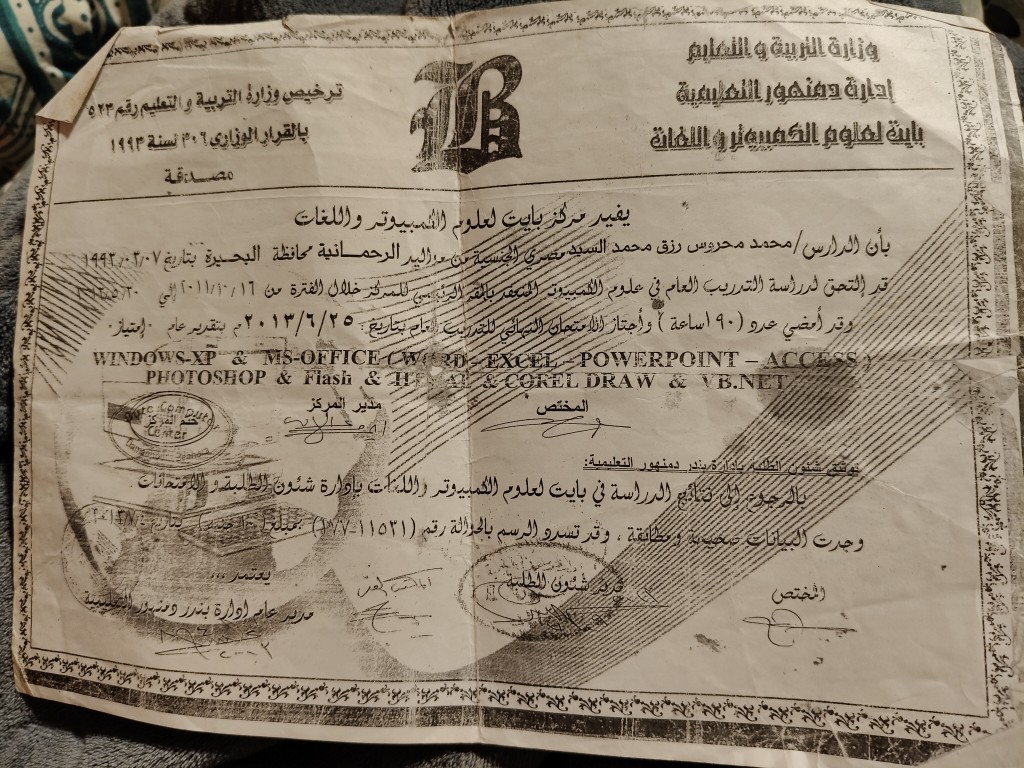 وزارة التربية و التعليم
إدارة دمنهور التعليمية
بايت لعلوم الكمبيوتر و اللغات
B
ترخيص وزارة التربية و التعليم رقم ٥٢٣
بالقرار الوزارى ٣٠٦ لسنة ١٩٩٣
مصدقة
يفيد مركز بايت لعلوم الكمبيوتر واللغات
بأن الدارس/ محمد محروس رزق محمد السيد مصري الجنسية من مواليد الرحمانية محافظة البحيرة بتاريخ ١٩٩٢/٠٣/٠٧
قد التحق لدراسة التدريب العام في علوم الكمبيوتر المنعقد بالمقر الرئيسي للمركز خلال الفترة من ٢٠١١/١٠/١٦ إلي
وقد أمضي عدد (١٩٠ ساعة) وأجتاز الامتحان النهائي للتدريب العام بتاريخ: ٢٠١٣/٦/٢٥م بتقدير عام امتياز
WINDOWS-XP & MS-OFFICE (WORD - EXCEL - POWERPOINT - ACCESS)
PHOTOSHOP & Flash & & COREL DRAW & VB.NET
المختص
مدير المركز
Computer
ختم المركز
Center
توثيق شئون الطلبة بإدارة بندر دمنهور التعليمية:
بالرجوع إلى نتائج الدراسة في بايت لعلوم الكمبيوتر واللغات بإدارة شئون الطلبة و الامتحانات
وجدت البيانات صحيحة ومطابقة ، وقد تسدد الرسم بالحوالة رقم بمبلغ بتاريخ
المختص
مدير شئون الطلبة
يعتمد ...
مدير عام إدارة بندر دمنهور التعليمية